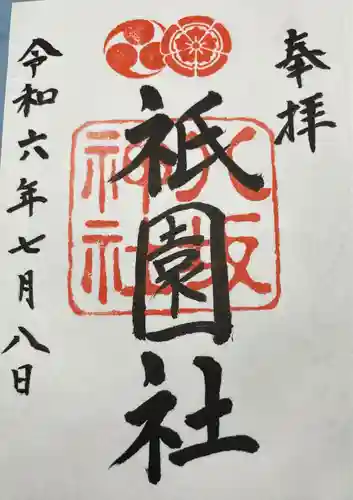 奉拝
八坂神社
祇園社
令和六年七月八日